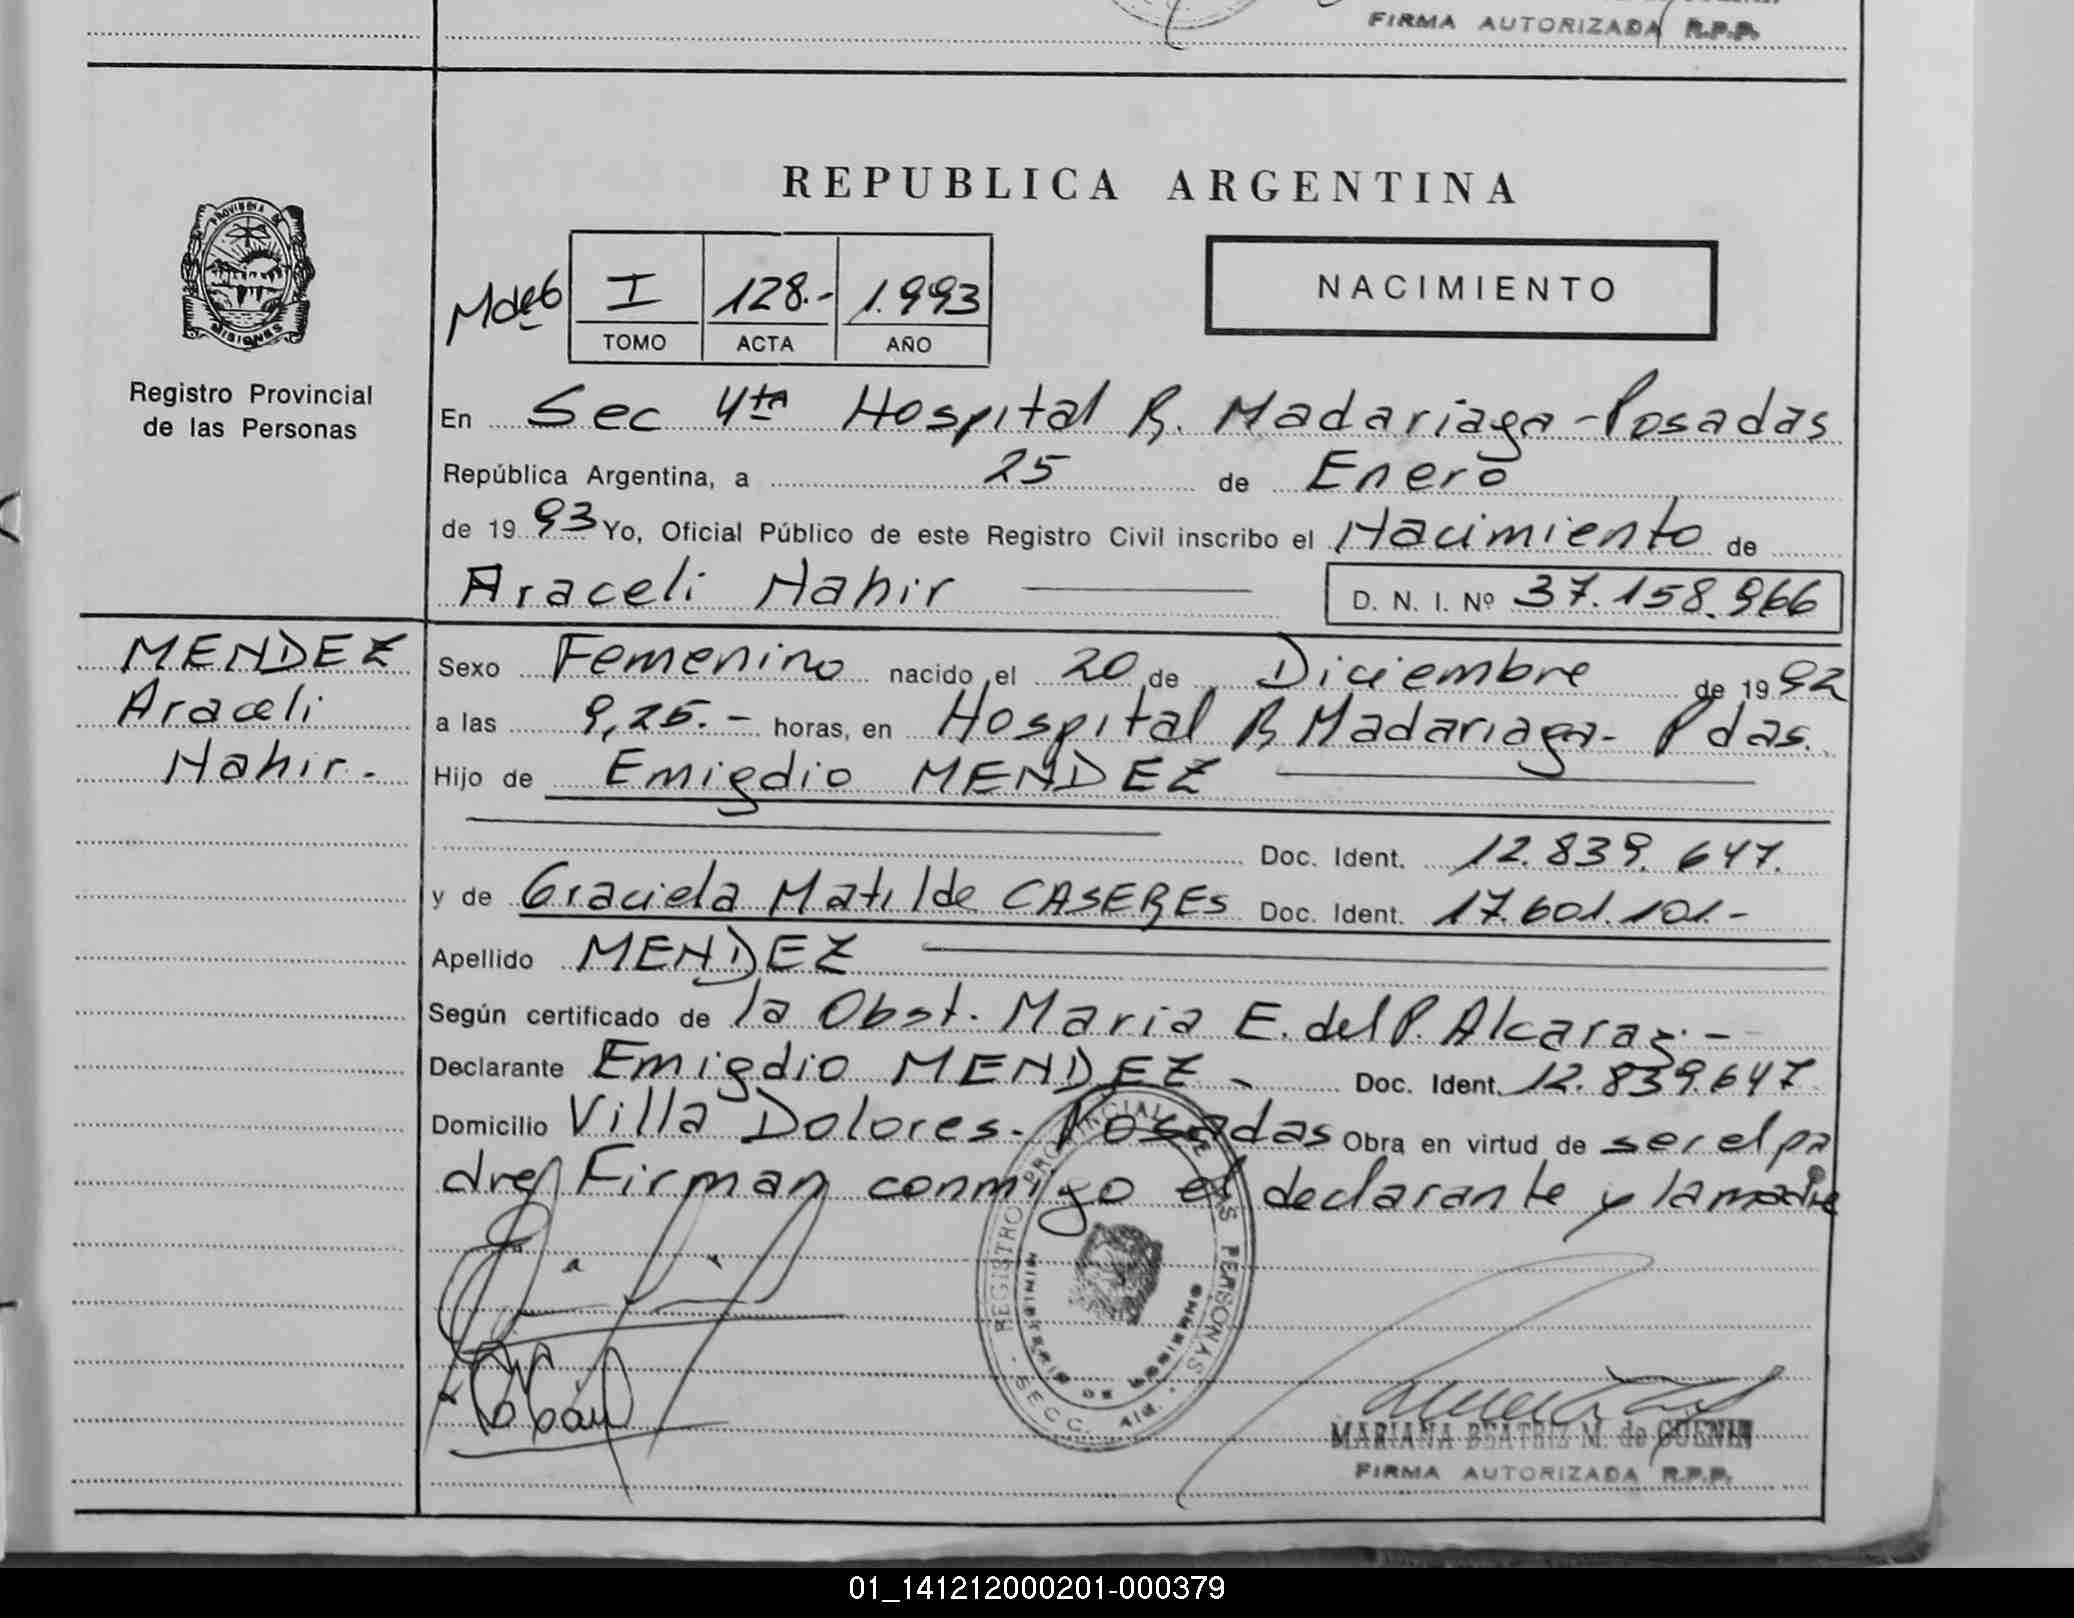 FIRMA AUTORIZADA R.P.P.
REPUBLICA ARGENTINA
PROVINCIA DE
MISIONES
Registro Provincial
de las Personas
I 128.- 1.993
TOMO ACTA AÑO
NACIMIENTO
En Sec 4ta Hospital R. Madariaga - Posadas
República Argentina, a 25 de Enero
de 19 93 Yo, Oficial Público de este Registro Civil inscribo el Nacimiento de
Araceli Nahir D. N. I. Nº 37.158.966
MENDEZ
Araceli
Nahir.-
Sexo Femenino nacido el 20 de Diciembre de 19 92
a las 9,25.- horas, en Hospital R Madariaga - Pdas.
Hijo de Emigdio MENDEZ
Doc. Ident. 12.839.647.
y de Graciela Matilde CASERES Doc. Ident. 17.601.101.-
Apellido MENDEZ
Según certificado de la Obst. Maria E. del P. Alcaraz.-
Declarante Emigdio MENDEZ - Doc. Ident. 12.839.647
Domicilio Villa Dolores - Posadas Obra en virtud de ser el pa
dre Firman conmigo el declarante y la madre
REGISTRO PROVINCIAL DE LAS PERSONAS
MINISTERIO DE GOBIERNO
SECC. 4ta.
MARIANA BEATRIZ M. de GUENIN
FIRMA AUTORIZADA R.P.P.
01_141212000201-000379